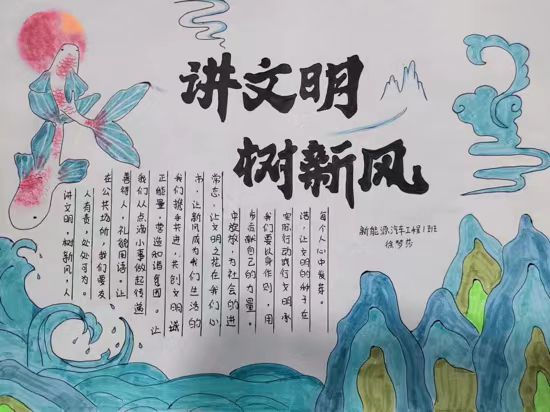 讲文明
树新风
讲文明,树新风,人
人有责,处处可为。
在公共场所,我们要友
善待人,礼貌用语。让
我们从点滴小事做起传递
正能量,营造和谐氛围。让
我们携手共进,共创文明城
市,让新风成为我们生活的
常态,让文明之花在我们心
中绽放,为社会的进
步贡献自己的力量。
我们要以身作则,用
实际行动践行文明承
诺,让文明的种子在
每个人心中发芽。
新能源汽车工程1班
徐梦莎